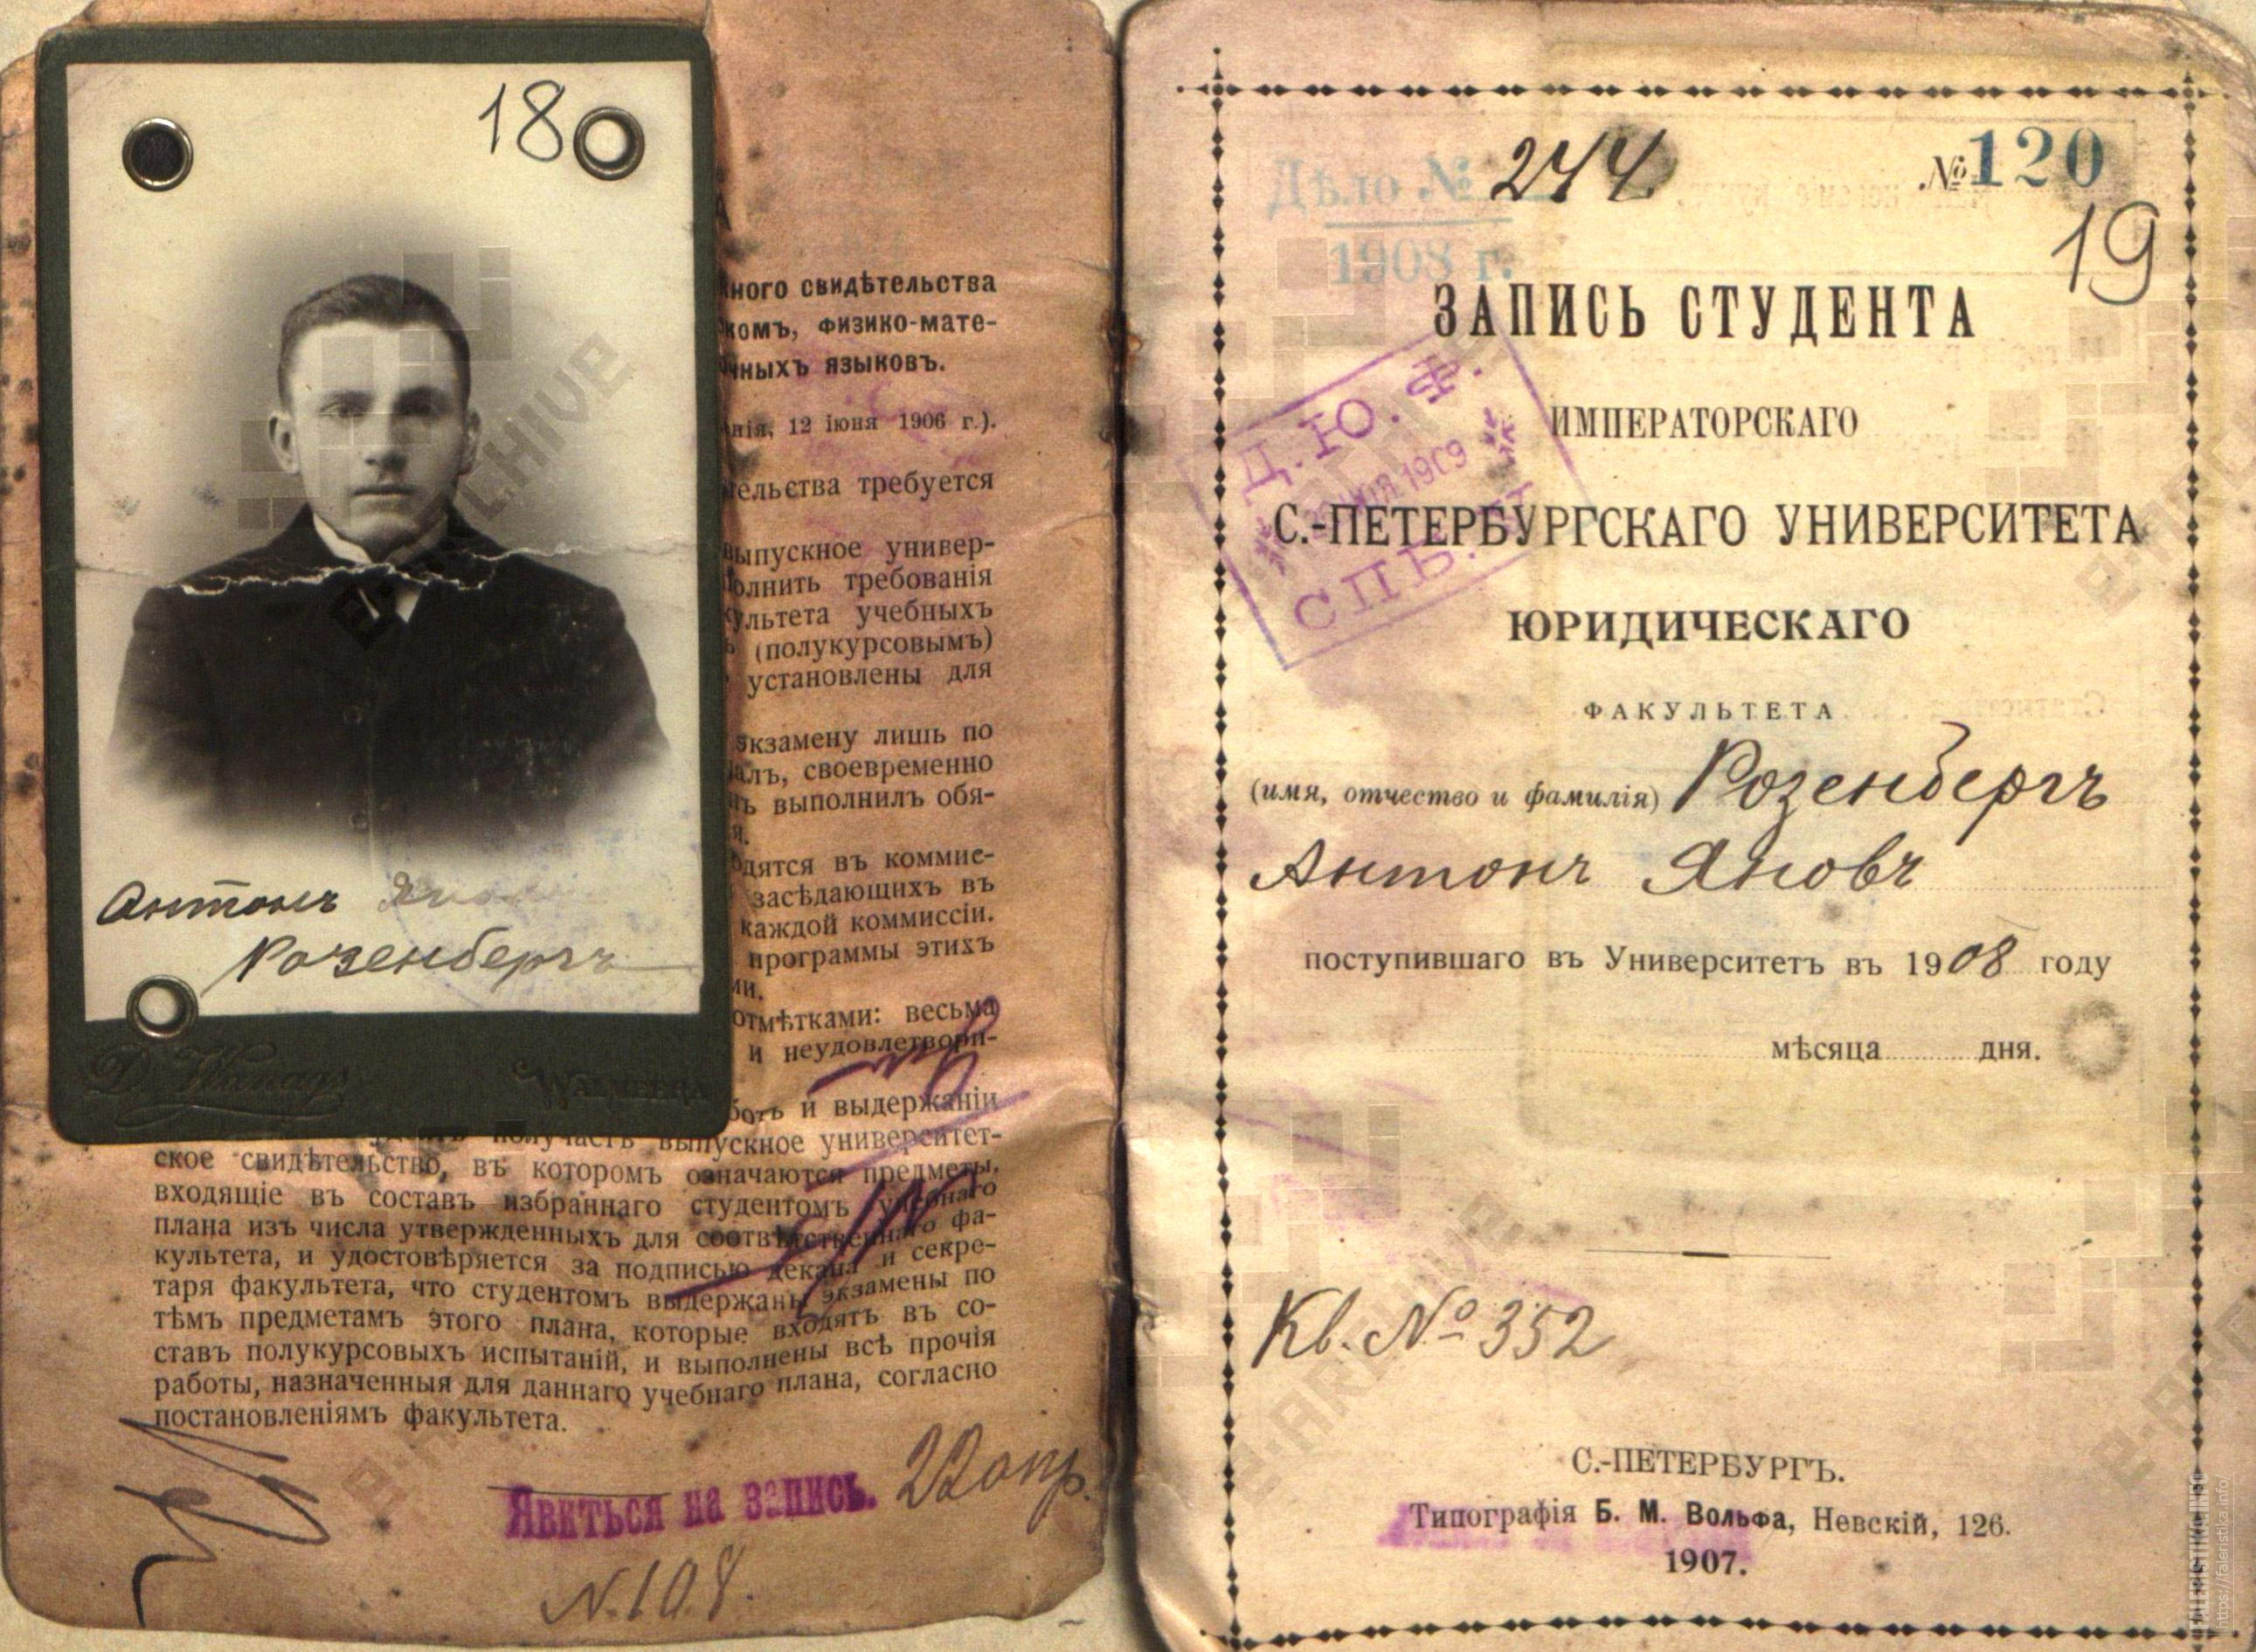 180
Антонъ
Розенбергъ
D. Wanags
WALMEERA
ного свидѣтельства
комъ, физико-мате-
чныхъ языковъ.
нія, 12 іюня 1906 г.).
тельства требуется
выпускное универ-
полнить требованія
культета учебныхъ
(полукурсовымъ)
установлены для
экзамену лишь по
алъ, своевременно
ъ выполнилъ обя-
я.
одятся въ коммис-
засѣдающихъ въ
каждой коммиссіи.
программы этихъ
ми.
отмѣтками: весьма
и неудовлетвори-
ботъ и выдержаніи
получаетъ выпускное университет-
ское свидѣтельство, въ которомъ означаются предметы,
входящіе въ составъ избраннаго студентомъ учебнаго
плана изъ числа утвержденныхъ для соотвѣтственнаго фа-
культета, и удостовѣряется за подписью декана и секре-
таря факультета, что студентомъ выдержаны экзамены по
тѣмъ предметамъ этого плана, которые входятъ въ со-
ставъ полукурсовыхъ испытаній, и выполнены всѣ прочія
работы, назначенныя для даннаго учебнаго плана, согласно
постановленіямъ факультета.
Явиться на запись. 22 апр.
N. 108.
Дѣло № 244
1908 г.
№ 120
19
ЗАПИСЬ СТУДЕНТА
ИМПЕРАТОРСКАГО
С.-ПЕТЕРБУРГСКАГО УНИВЕРСИТЕТА
ЮРИДИЧЕСКАГО
ФАКУЛЬТЕТА
Д.Ю.Ф.
1909
СПБ.
(имя, отчество и фамилія) Розенбергъ
Антонъ Яновъ
поступившаго въ Университетъ въ 1908 году
мѣсяца дня.
Кв. № 352
С.-ПЕТЕРБУРГЪ.
Типографія Б. М. Вольфа, Невскій, 126.
1907.
e-ARCHIVE
FALERISTIKA.INFO
https://faleristika.info